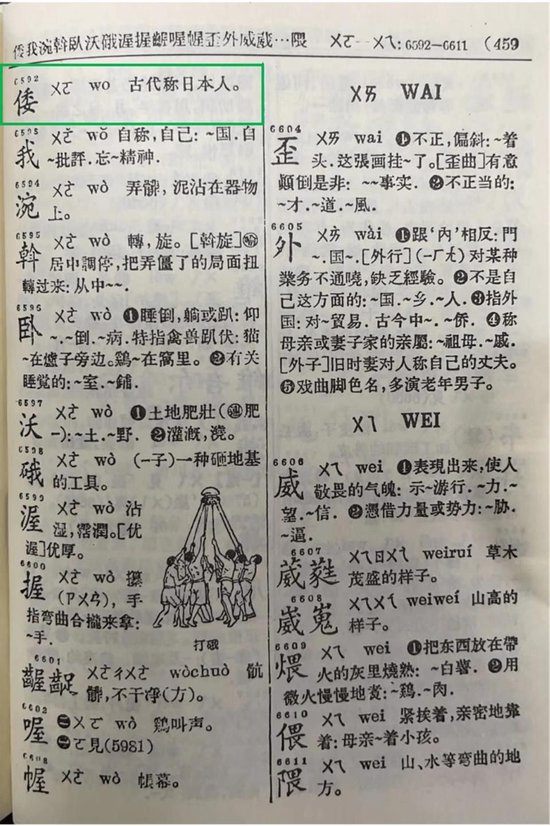 倭我涴斡臥沃硪渥握齷喔幄歪外威葳…隈 ㄨㄛ—ㄨㄟ: 6592—6611 (459
6592
倭 ㄨㄛ wo 古代称日本人。
6593
我 ㄨㄛˇ wǒ 自称,自己: ~国.自
~批評.忘~精神.
6594
涴 ㄨㄛˋ wò 弄髒, 泥沾在器物
上。
6595
斡 ㄨㄛˋ wò 轉,旋。[斡旋]
居中調停,把弄僵了的局面扭
轉过来: 从中~~.
6596
卧 ㄨㄛˋ wò ❶睡倒,躺或趴: 仰
~.~倒.~病. 特指禽兽趴伏: 猫
~在爐子旁边.鷄~在窩里. ❷有关
睡觉的: ~室.~鋪.
6597
沃 ㄨㄛˋ wò ❶土地肥壯(連肥
—): ~土.~野. ❷灌漑,澆。
6598
硪 ㄨㄛˋ wò (—子)一种砸地基
的工具。
6599
渥 ㄨㄛˋ wò 沾
湿,霑潤。[优
渥]优厚。
6600
握 ㄨㄛˋ wò 攥
(ㄗㄨㄢˋ), 手
指弯曲合攏来拿:
~手.
打硪
6601
齷齪 ㄨㄛˋㄔㄨㄛˋ wòchuò 骯
髒,不干凈(方)。
6602
喔 ㊀ㄨㄛ wo 鷄叫声。
㊁ㄛ見(5981)
6603
幄 ㄨㄛˋ wò 帳幕。
ㄨㄞ WAI
6604
歪 ㄨㄞ wai ❶不正,偏斜: ~着
头.这張画挂~了。[歪曲]有意
顚倒是非: ~~事实. ❷不正当的:
~才.~道.~風.
6605
外 ㄨㄞˋ wài ❶跟‘内’相反: 門
~.国~.[外行](—ㄏㄤˊ) 对某种
業务不通曉,缺乏經驗。❷不是自
己这方面的: ~国.~乡.~人.❸指外
国: 对~貿易. 古今中~.~侨. ❹称
母亲或妻子家的亲屬: ~祖母.~戚.
[外子]旧时妻对人称自己的丈夫。
❺戏曲脚色名,多演老年男子。
ㄨㄟ WEI
6606
威 ㄨㄟ wei ❶表現出来,使人
敬畏的气魄: 示~游行.~力.~
望.~信. ❷憑借力量或势力: ~胁.
~逼.
6607
葳蕤 ㄨㄟㄖㄨㄟˊ weiruí 草木
茂盛的样子。
6608
崴嵬 ㄨㄟㄨㄟˊ weiweí 山高的
样子。
6609
煨 ㄨㄟ wei ❶把东西放在帶
火的灰里燒熟: ~白薯. ❷用
微火慢慢地煮: ~鷄.~肉.
6610
偎 ㄨㄟ wei 紧挨着,亲密地靠
着: 母亲~着小孩。
6611
隈 ㄨㄟ wei 山、水等弯曲的地
方。